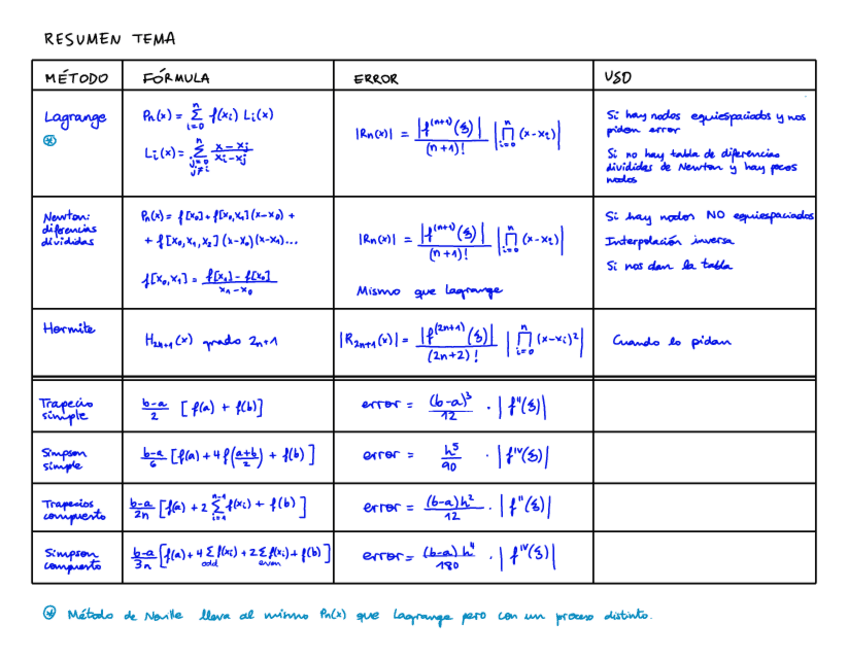 RESUMEN TEMA
MÉTODO FÓRMULA ERROR USO
Lagrange
⊛
Pn(x) = Σ_{i=0}^{n} f(xi) Li(x)
Li(x) = Σ_{j=0, j≠i}^{n} (x-xj)/(xi-xj)
|Rn(x)| = |f^(n+1)(ξ)|/(n+1)! |∏_{i=0}^{n} (x-xi)|
Si hay nodos equiespaciados y nos
piden error
Si no hay tabla de diferencias
divididas de Newton y hay pocos
nodos
Newton:
diferencias
divididas
Pn(x) = f[x0] + f[x0,x1](x-x0) +
+ f[x0,x1,x2](x-x0)(x-x1)...
f[x0,x1] = (f[x1] - f[x0])/(x1-x0)
|Rn(x)| = |f^(n+1)(ξ)|/(n+1)! |∏_{i=0}^{n} (x-xi)|
Mismo que lagrange
Si hay nodos NO equiespaciados
Interpolación inversa
Si nos dan la tabla
Hermite
H2n+1(x) grado 2n+1
|R2n+1(x)| = |f^(2n+1)(ξ)|/(2n+2)! |∏_{i=0}^{n} (x-xi)²|
Cuando lo pidan
Trapecio
simple
(b-a)/2 [f(a) + f(b)]
error = (b-a)³/12 · |f''(ξ)|
Simpson
simple
(b-a)/6 [f(a) + 4f((a+b)/2) + f(b)]
error = h⁵/90 · |f^IV(ξ)|
Trapecios
compuesto
(b-a)/2n [f(a) + 2 Σ_{i=1}^{n-1} f(xi) + f(b)]
error = (b-a)h²/12 · |f''(ξ)|
Simpson
compuesto
(b-a)/3n [f(a) + 4 Σ_{odd} f(xi) + 2 Σ_{even} f(xi) + f(b)]
error = (b-a)h⁴/180 · |f^IV(ξ)|
⊛ Método de Neville lleva al mismo Pn(x) que Lagrange pero con un proceso distinto.